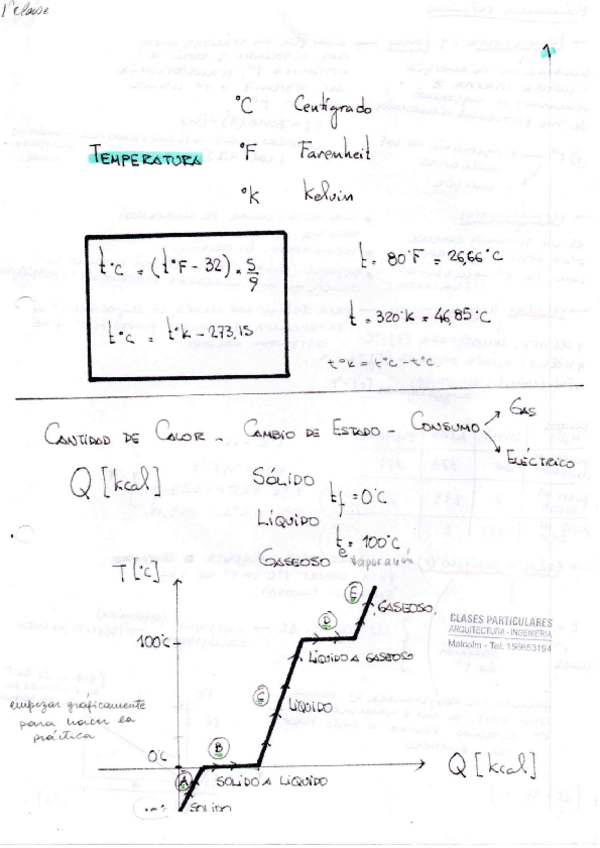 1º clase
1
°C Centígrado
TEMPERATURA °F Farenheit
°K Kelvin
t°C = (t°F - 32) × 5/9
t°C = t°K - 273,15
t = 80°F = 26,66°C
t = 320°K = 46,85°C
t°K = t°C - t°C.
CANTIDAD DE CALOR - CAMBIO DE ESTADO - CONSUMO
GAS
ELÉCTRICO
Q [kcal]
SÓLIDO
tf = 0°C
LÍQUIDO
te = 100°C
vaporación
GASEOSO
T [°C]
E
GASEOSO.
D
CLASES PARTICULARES
ARQUITECTURA - INGENIERIA
Malcolm - Tel. 156653194
100°C
LÍQUIDO A GASEOSO
C
LÍQUIDO
empezar graficamente
para hacer la
práctica
B
0°C
Q [kcal]
A
SOLIDO A LÍQUIDO
SOLIDO